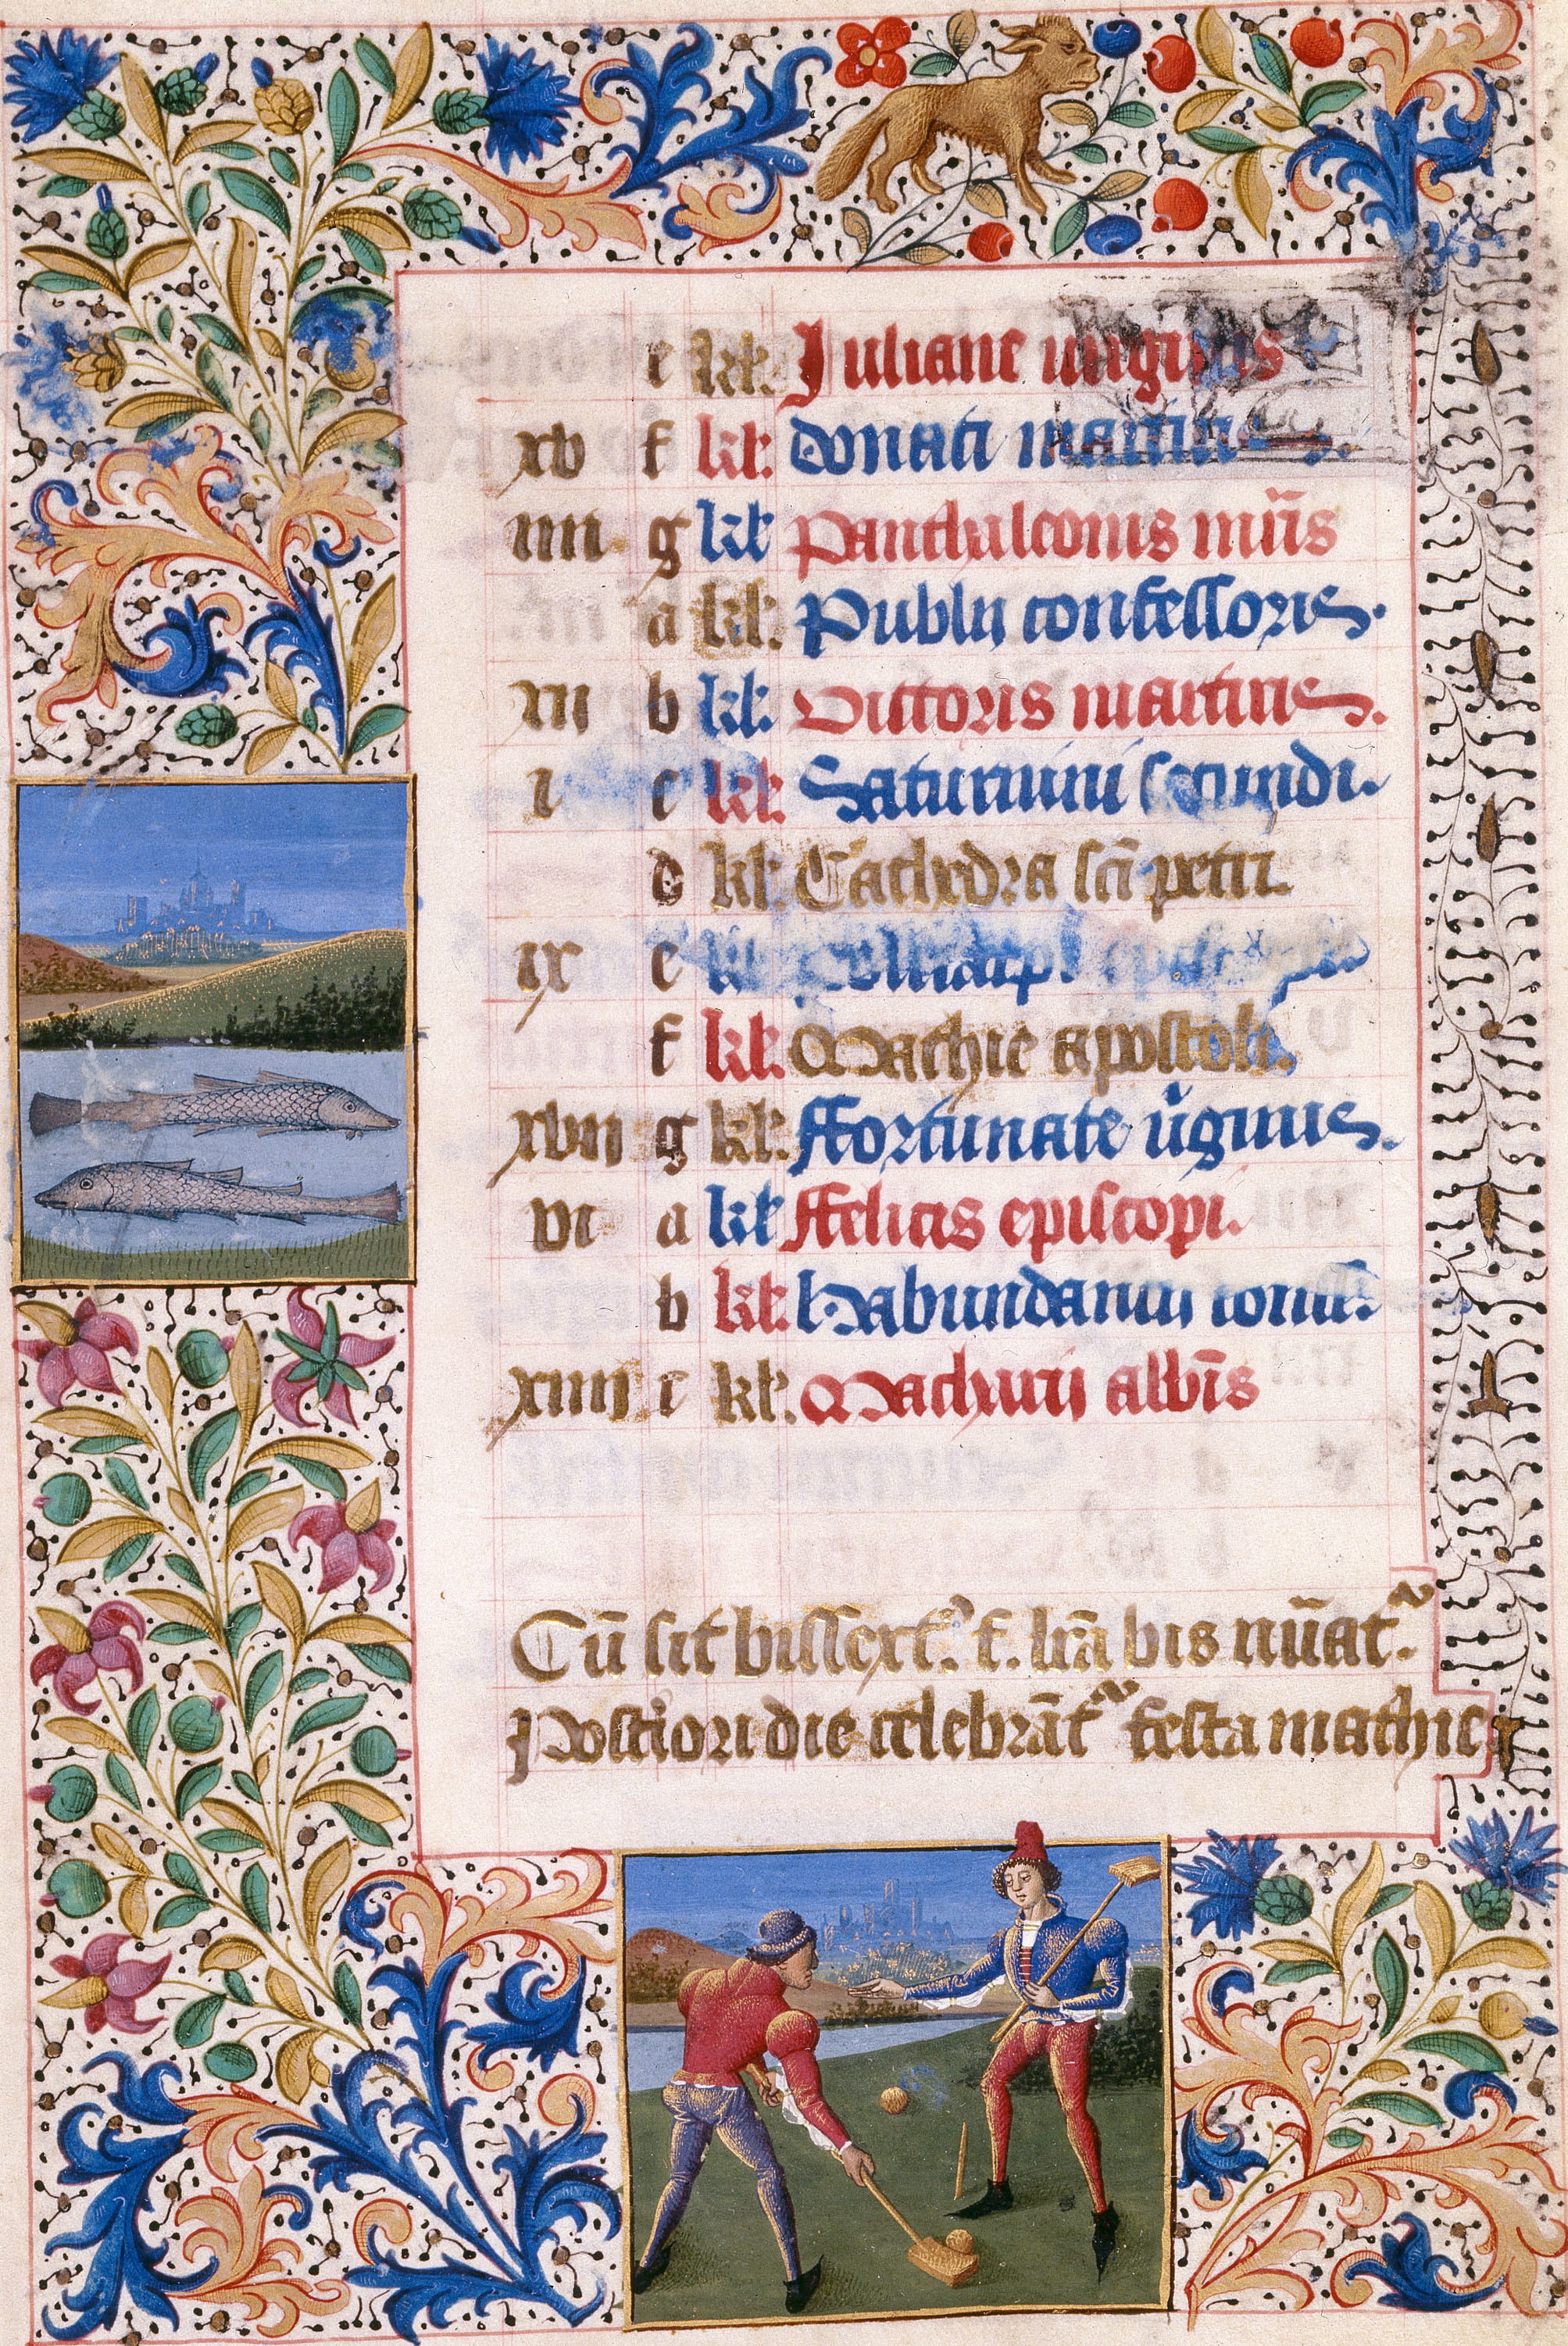 e kl. Juliane virginis
xv f kl. Donati martiris.
iiii g kl Panthaleonis mr̄is
a kl. Publii confessoris.
xii b kl. Victoris martiris.
i c kl. Saturnini secundi.
d kl. Cathedra sc̄i petri.
ix e kl.
f kl. Mathie apostoli.
xvii g kl. Ffortunate v̄ginis.
vi a kl Ffelicis episcopi.
b kl. Habundantii
xiiii c kl. Macharii alb̄is
Cū sit bissext. f. lr̄a bis nūat.
Posteriori die celebrāt festa mathie